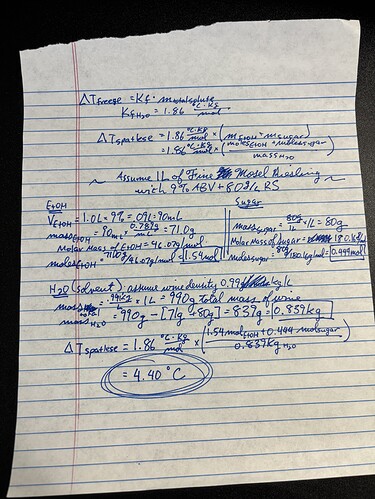 ΔTfreeze = Kf · mtotal solute
Kf H2O = 1.86 °C·Kg/mol
ΔTspatlese = 1.86 °C·Kg/mol × (mEtOH + msugar)
= 1.86 °C·Kg/mol × (molesEtOH + molessugar / massH2O)
~ Assume 1L of Fine Mosel Riesling ~
with 9% ABV + 80g/L RS
EtOH
VEtOH = 1.0L × 9% = .09L = 90mL
massEtOH = 90mL × 0.789g/mL = 71.0g
Molar Mass of EtOH = 46.07g/mol
molesEtOH = 71.0g/46.07g/mol = 1.54mol
Sugar
masssugar = 80g/1L × 1L = 80g
Molar Mass of Sugar = 180.16g/mol
molessugar = 80g/180.16g/mol = 0.444mol
H2O (Solvent) assume wine density 0.99 kg/L
mass = .99Kg/L × 1L = 990g total mass of wine
massH2O = 990g - [71g + 80g] = 839g = 0.839kg
ΔTspatlese = 1.86 °C·Kg/mol × (1.54molEtOH + 0.444 molsugar / 0.839Kg H2O)
= 4.40 °C